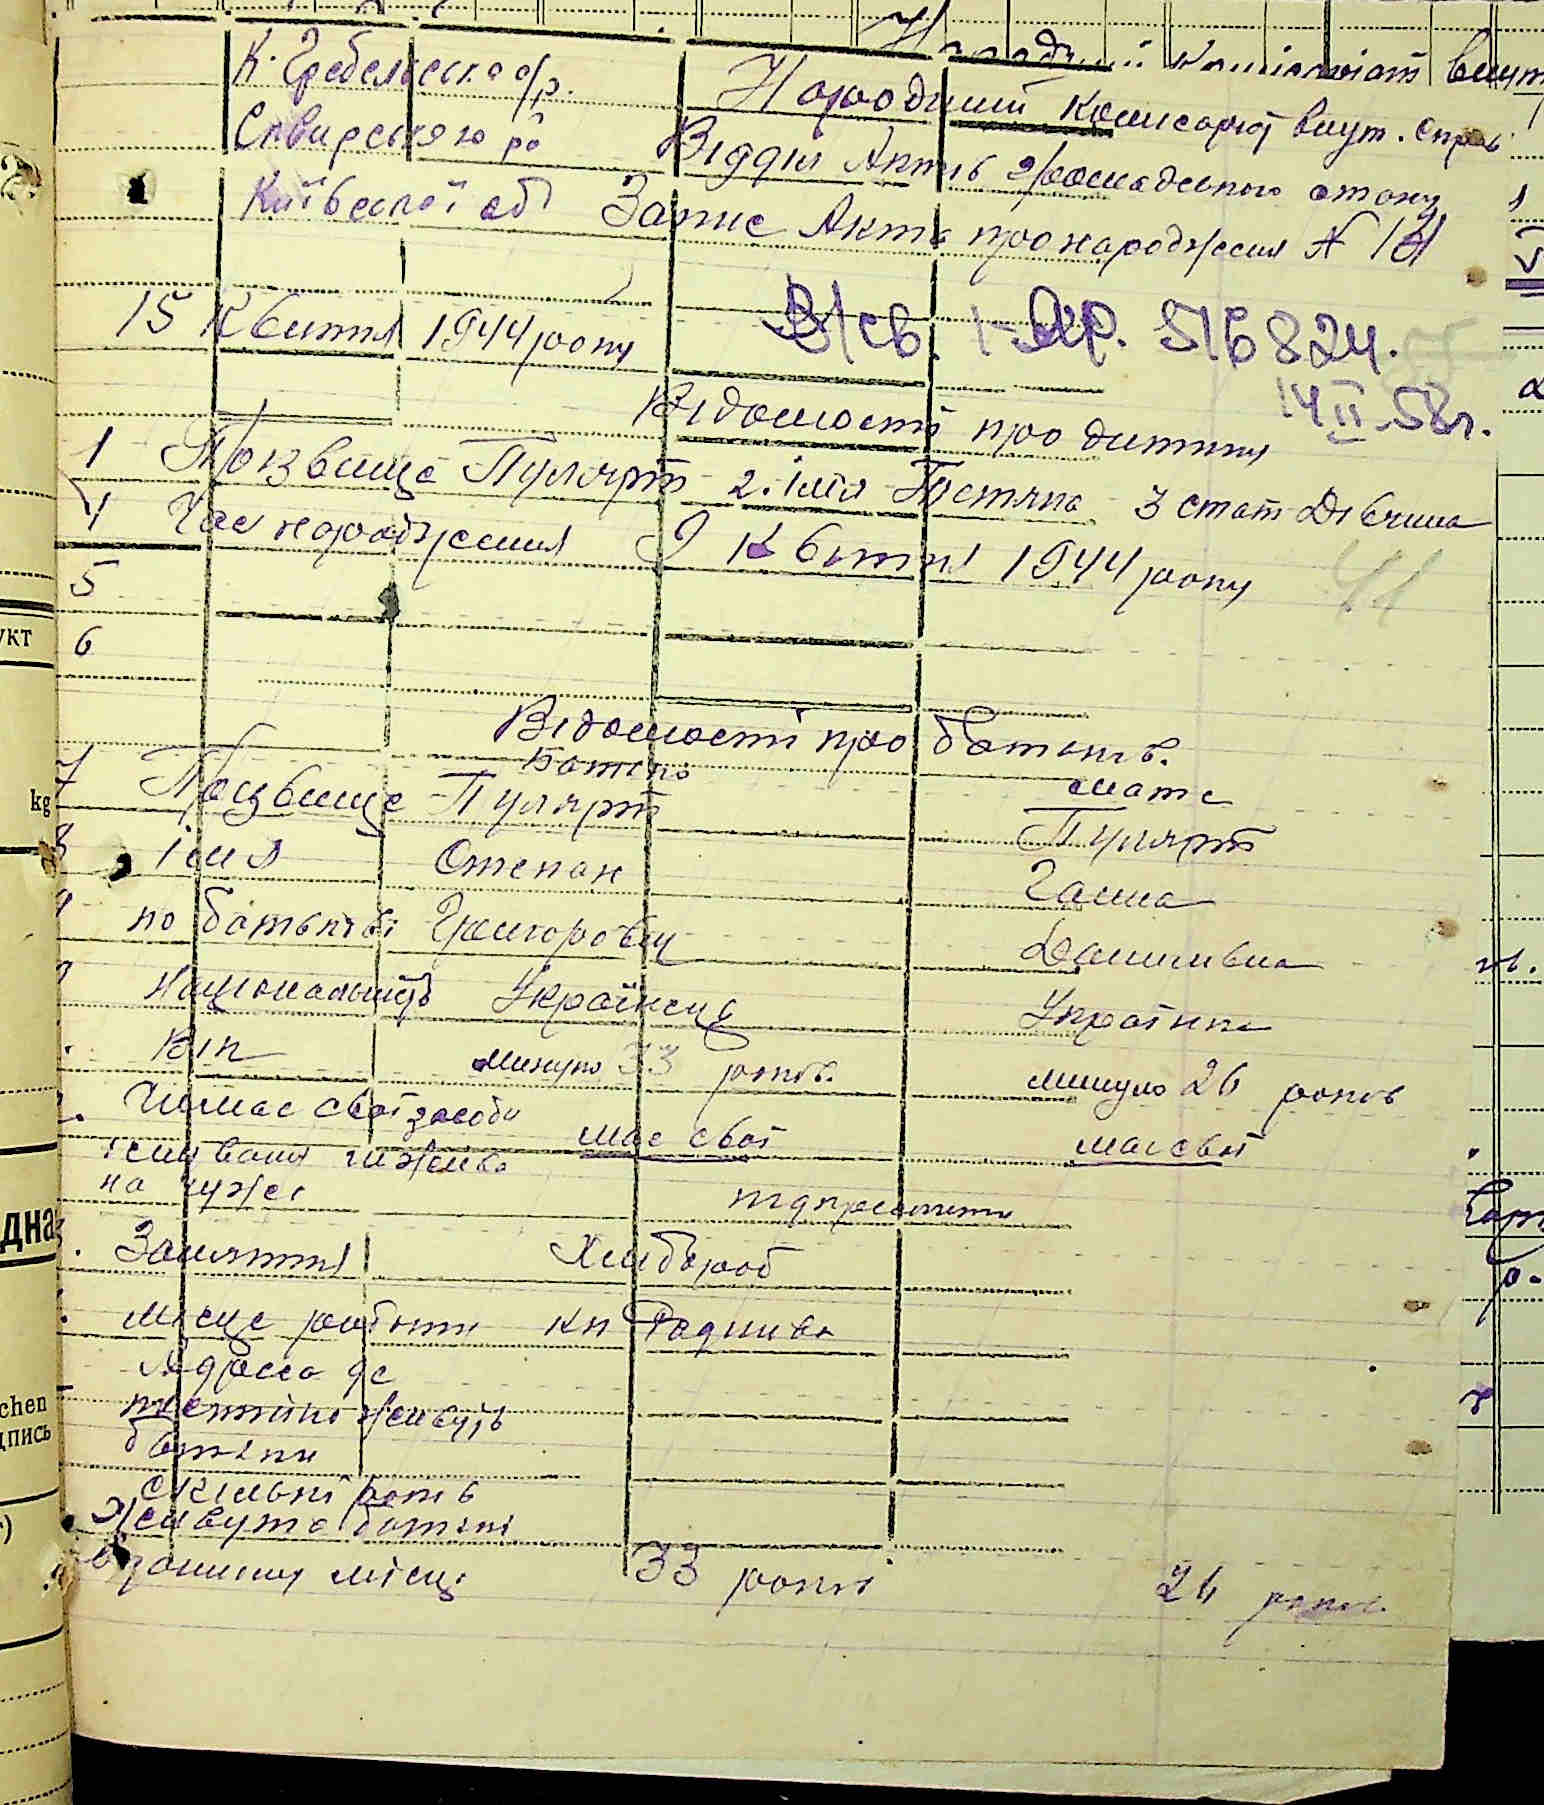 Народний Комісаріат Внут
К. Гребельська с/р.
Народний Комісаріят внут. справ
Сквирського р-
Відділ Актів громадського стану
Київської обл
Запис Акта про народження N 14
15 Квітня 1944 року
В/св. 516824.
14 II 58г.
Відомості про дитину
1 Прізвище Пулярт 2. імя Тетяна 3 стат Дівчина
4 Час народження 9 Квітня 1944 року
44
5
6
Відомості про батьків.
Батько мати
7 Прізвище Пулярт Пулярт
8 імя Степан Ганна
9 по батькові Григорович Данилівна
Національність Українець Українка
Вік минуло 33 років. минуло 26 років
Чи має свої засоби
існування чи живе має свої має свої
на чужі підкреслити
Заняття Хлібороб
Місце роботи
Адреса де
постійно живуть
батьки
скільки років
живуть батьки
в даному місці 33 роки 26 років
укт
kg
дна
chen
дпись